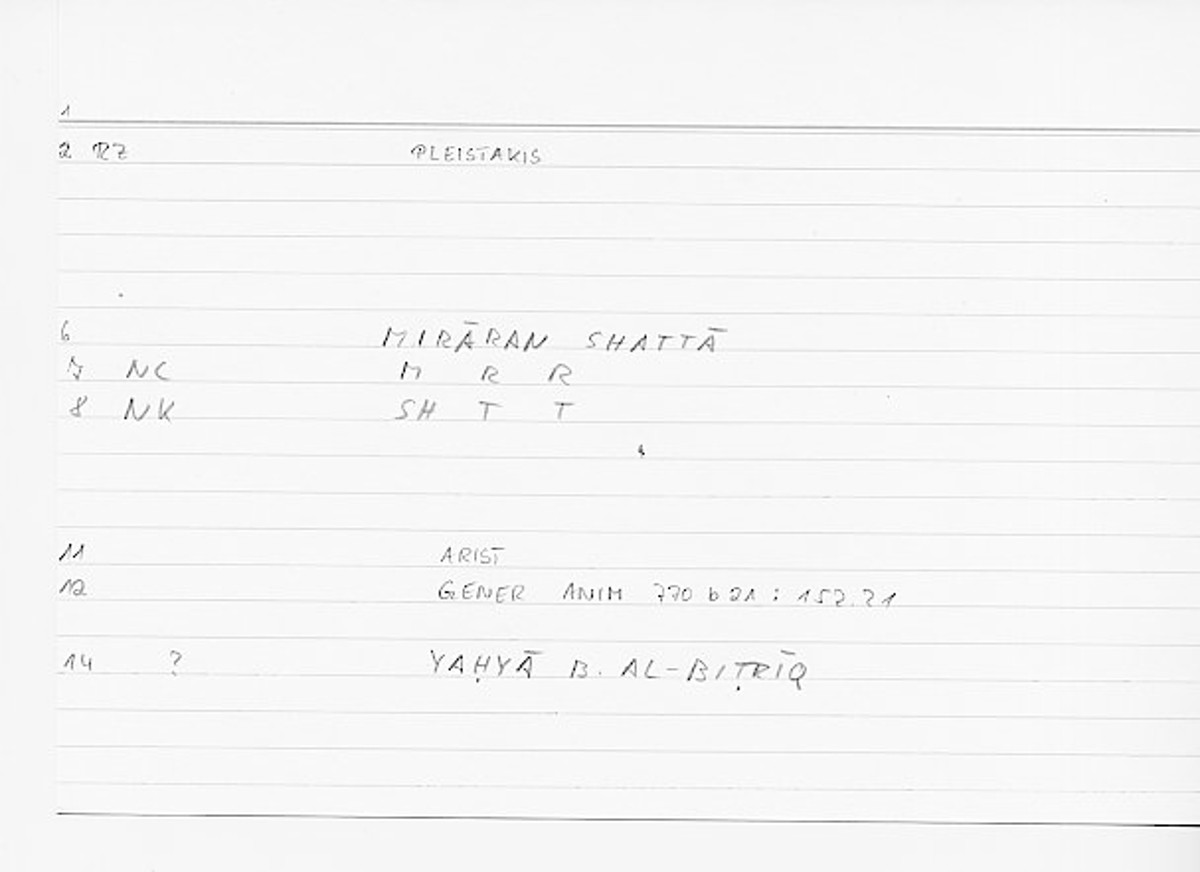 1
2 RZ PLEISTAKIS
6 MIRĀRAN SHATTĀ
7 NC M R R
8 NK SH T T
11 ARIST
12 GENER ANIM 770 b 21 : 152.21
14 ? YAḤYĀ B. AL-BIṬRĪQ